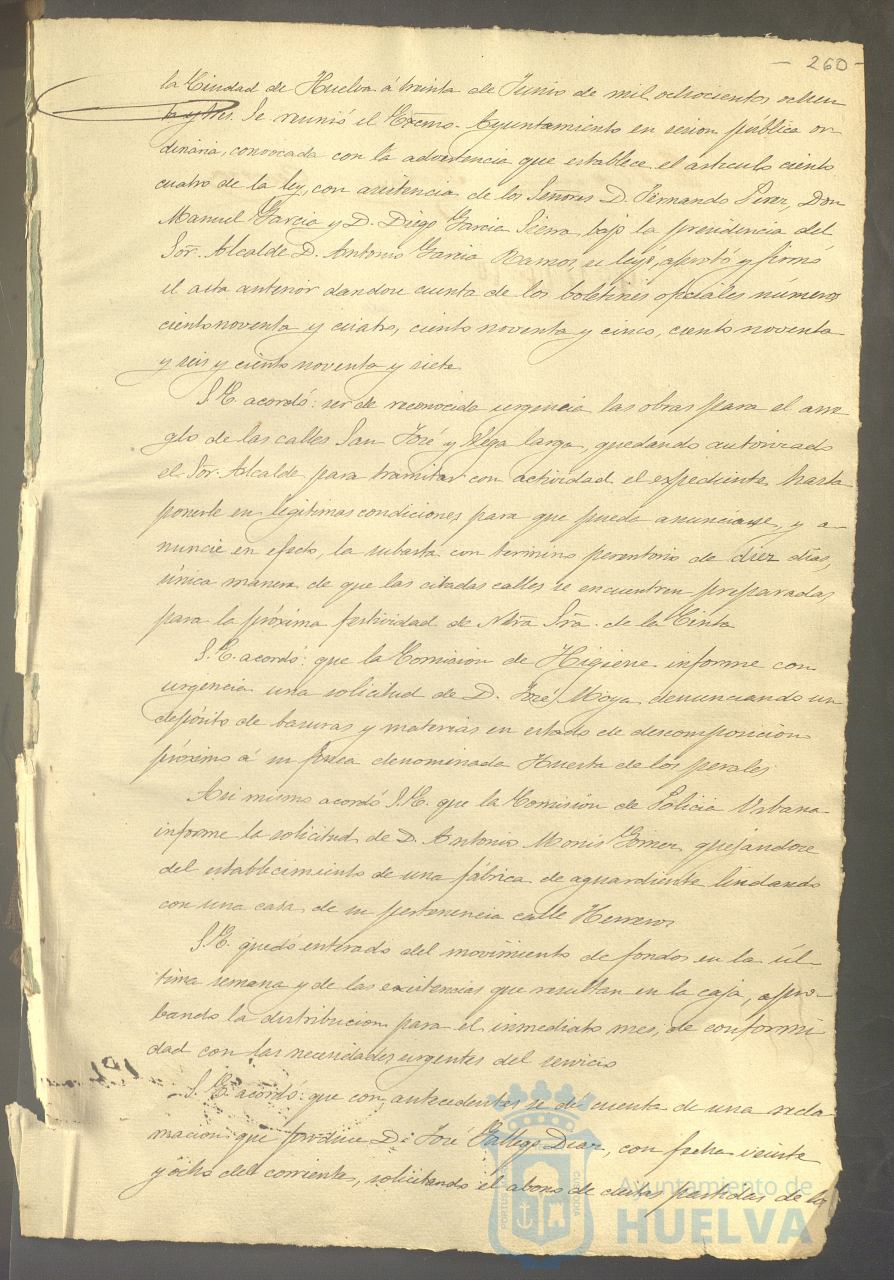 - 260 -
la Ciudad de Huelva á treinta de Junio de mil ochocientos ochen
ta y tres. Se reunió el Excmo. Ayuntamiento en sesion pública or
dinaria, convocada con la advertencia que establece el artículo ciento
cuatro de la ley, con asistencia de los Señores D. Fernando Perez, Don
Manuel Garcia y D. Diego Garcia Sierra, bajo la presidencia del
Sor. Alcalde D. Antonio Garcia Ramos se leyó, aprobó y firmó
el acta anterior dandose cuenta de los boletines oficiales números
ciento noventa y cuatro, ciento noventa y cinco, ciento noventa
y seis y ciento noventa y siete
S.E. acordó: ser de reconocida urgencia las obras para el arre
glo de las calles San José y Vega larga, quedando autorizado
el Sor. Alcalde para tramitar con actividad el expediente hasta
ponerle en legitimas condiciones para que pueda anunciarse, y a-
nuncie en efecto, la subasta con termino perentorio de diez días,
única manera de que las citadas calles se encuentren preparadas
para la próxima festividad de Ntra Sra. de la Cinta
S.E. acordó: que la Comision de Higiene informe con
urgencia una solicitud de D. José Moya denunciando un
depósito de basuras y materias en estado de descomposicion
próximo á su finca denominada Huerta de los perales
Asi mismo acordó S.E. que la Comisión de Policia Urbana
informe la solicitud de D. Antonio Monis Gomez quejándose
del establecimiento de una fábrica de aguardiente lindando
con una casa de su pertenencia calle Herreros
S.E. quedó enterado del movimiento de fondos en la úl-
tima semana y de las existencias que resultan en la caja, apro-
bando la distribucion para el inmediato mes, de conformi
dad con las necesidades urgentes del servicio
S.E. acordó: que con antecedentes se dé cuenta de una recla
macion que produce D. José Gallego Diaz, con fecha veinte
y ocho del corriente, solicitando el abono de ciertas partidas de la
Ayuntamiento de
HUELVA